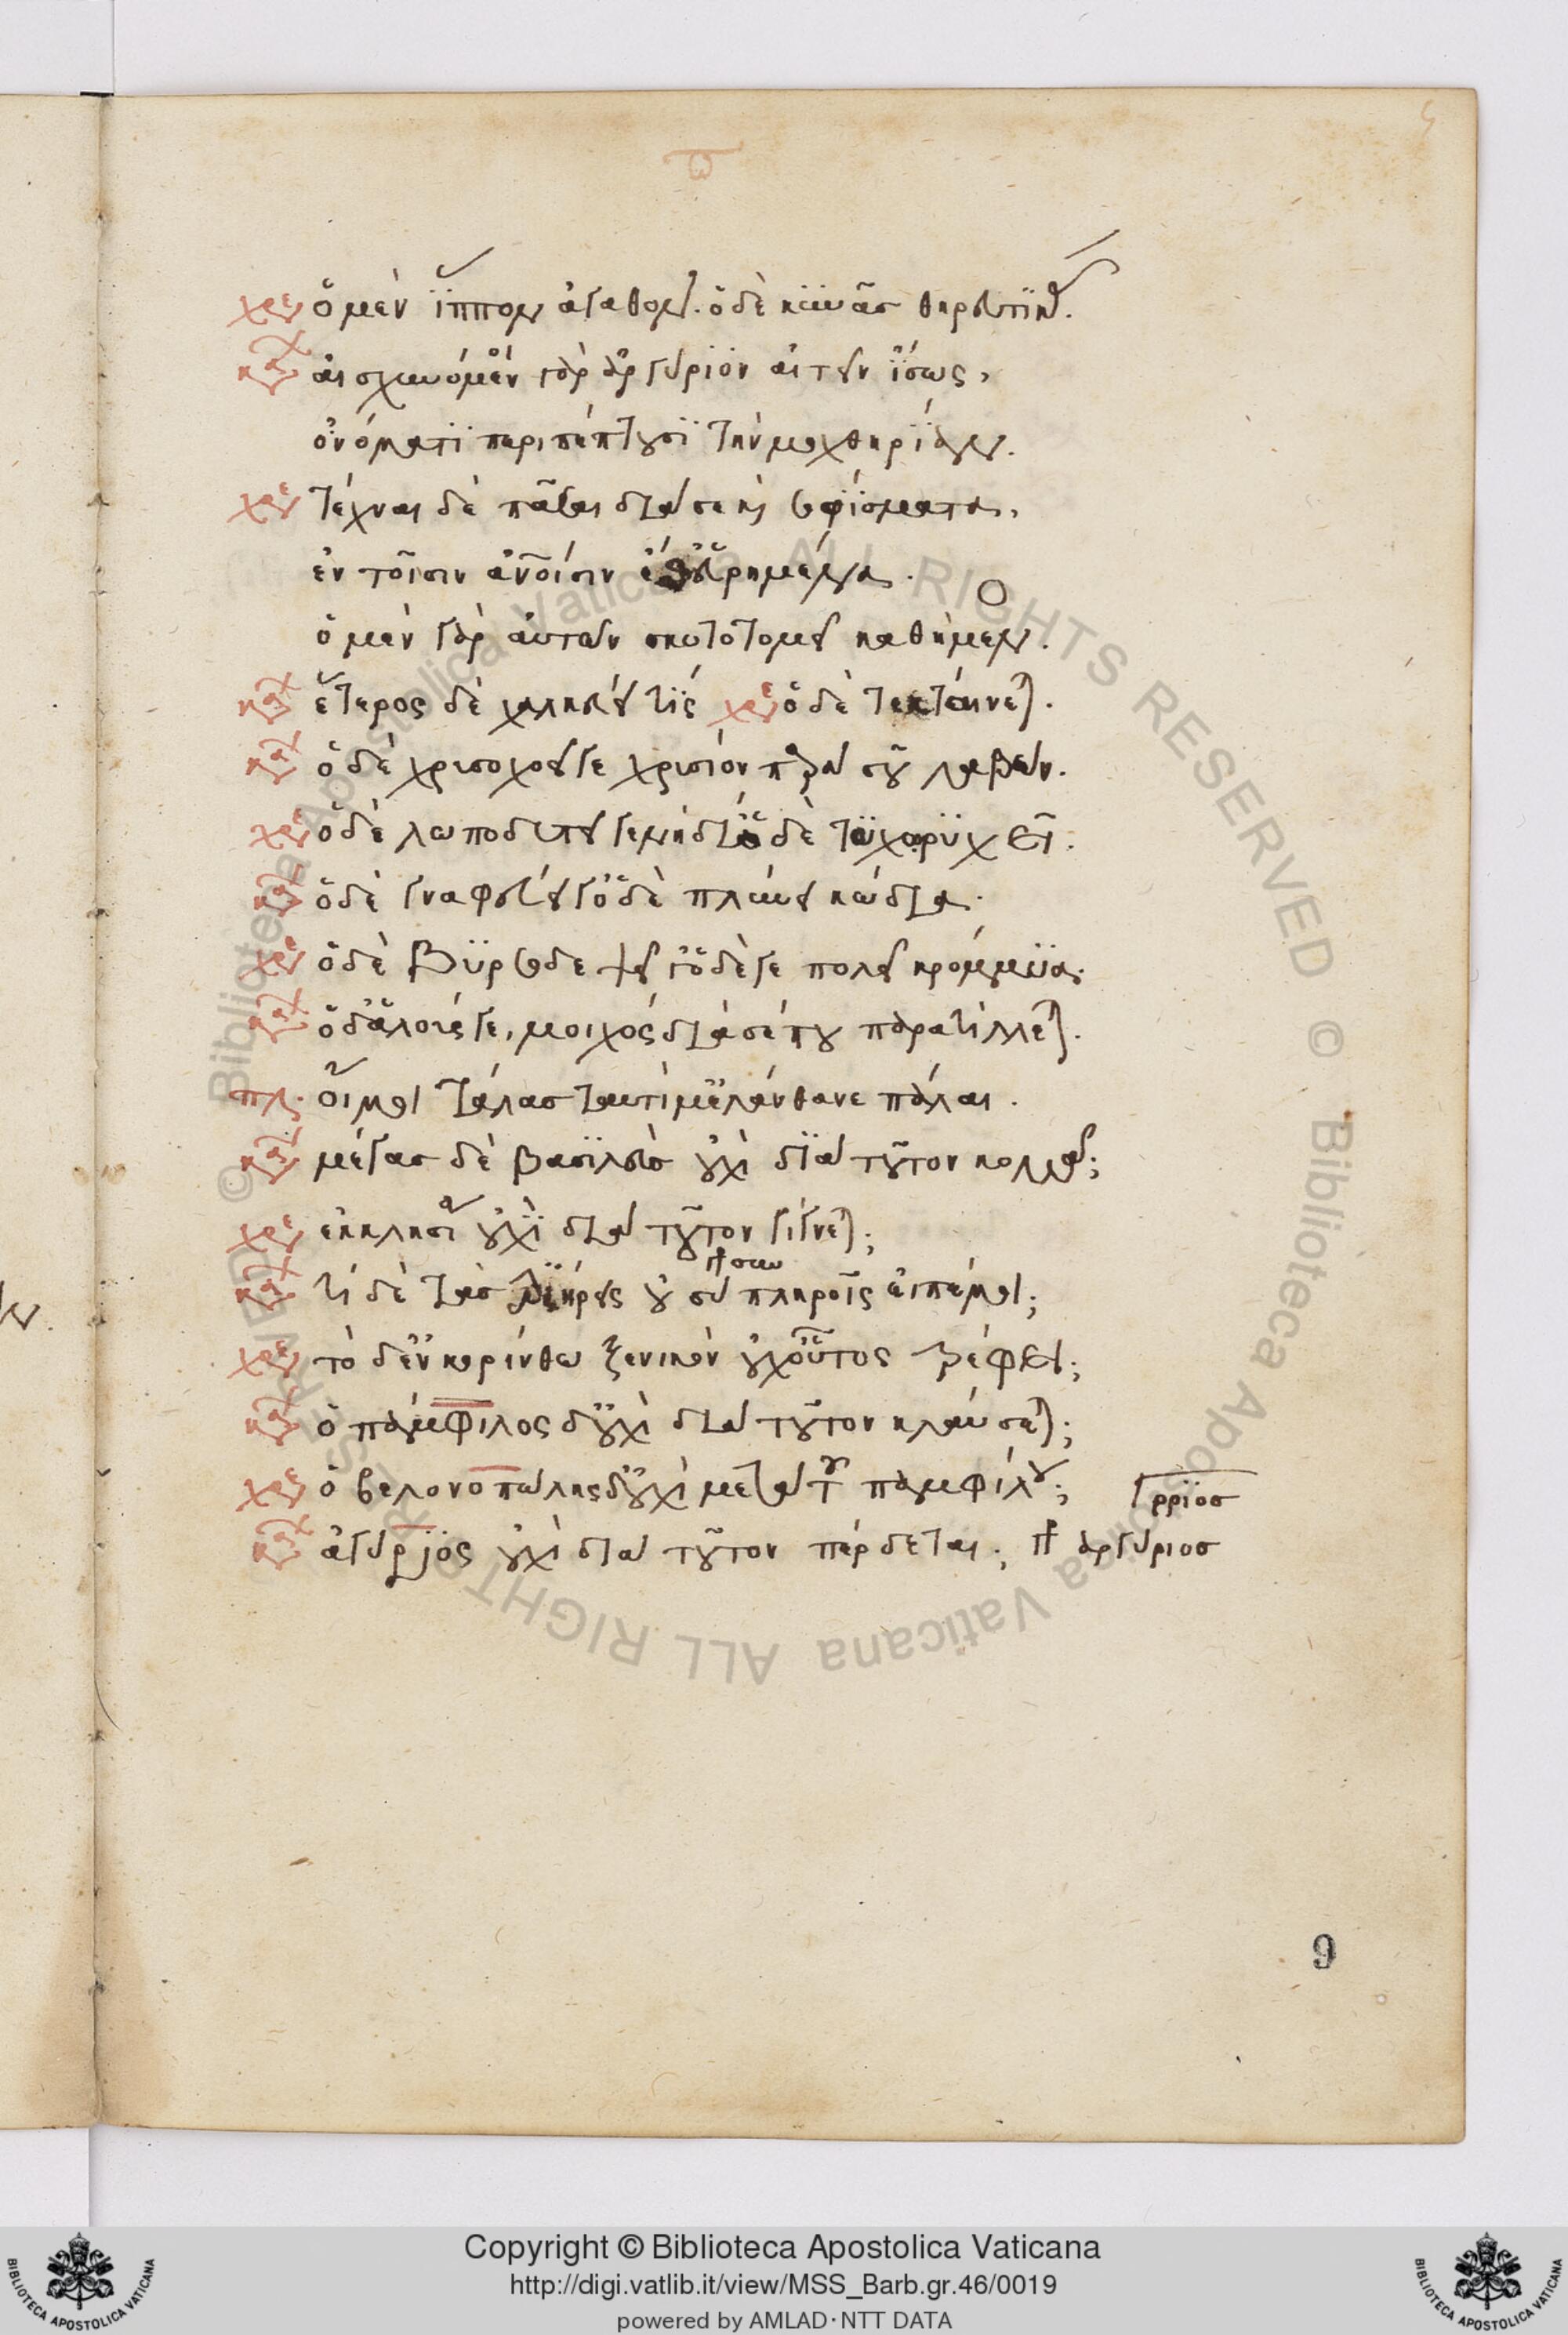 χρε ὁ μὲν ἵππον ἀγαθὸν. ὁ δὲ κύνας θηρευτικ.
καρ αἰσχυνόμενοι γὰρ ἀργύριον αἰτεῖν ἴσως,
ὀνόματι περιπέπτουσι τὴν μοχθηρίαν.
χρε τέχναι δὲ πᾶσαι διὰ σὲ καὶ σοφίσματα,
ἐν τοῖσιν ἀνοίσιν ἐσθ' εὑρημένα.
ὁ μὲν γὰρ αὐτῶν σκυτοτομεῖ καθήμεν.
καρ ἕτερος δὲ χαλκεύει τὶς χρε ὁ δὲ τεκταίνεται.
καρ ὁ δὲ χρυσοχοεῖ γε χρυσίον παρὰ σοῦ λαβών.
χρε ὁ δὲ λωποδυτεῖ γε νὴ δί' ὁ δὲ τοιχωρυχεῖ.
καρ ὁ δὲ γναφεύει γ' ὁ δὲ πλύνει κώδια.
χρε ὁ δὲ βυρσοδεψεῖ γ' ὁ δέ γε πωλεῖ κρόμμυα.
καρ ὁ δ' ἁλούς γε, μοιχὸς διὰ σέ που παρατίλλεται.
πλ. οἴμοι τάλας ταυτί μ' ἐλάνθανε πάλαι.
καρ μέγας δὲ βασιλεὺς οὐχὶ διὰ τοῦτον κομᾶ;
χρε ἐκκλησία οὐχὶ διὰ τοῦτον γίγνεται;
καρ τί δὲ τὰς τριήρεις οὐ σὺ πληροῖς εἰπέ μοι;
χρε τὸ δ' ἐν κορίνθω ξενικὸν οὐχ οὗτος τρέφει;
καρ ὁ πάμφιλος δ' οὐχὶ διὰ τοῦτον κλαύσεται;
χρε ὁ βελονοπώλης δ' οὐχὶ μετὰ τοῦ παμφίλου;
γρριος
καρ ἀγύρριος οὐχὶ διὰ τοῦτον πέρδεται; ἀργύριος
9
Copyright © Biblioteca Apostolica Vaticana
http://digi.vatlib.it/view/MSS_Barb.gr.46/0019
powered by AMLAD · NTT DATA
BIBLIOTECA APOSTOLICA VATICANA
BIBLIOTECA APOSTOLICA VATICANA
© Biblioteca Apostolica Vaticana ALL RIGHTS RESERVED © Biblioteca Apostolica Vaticana ALL RIGHTS RESERVED